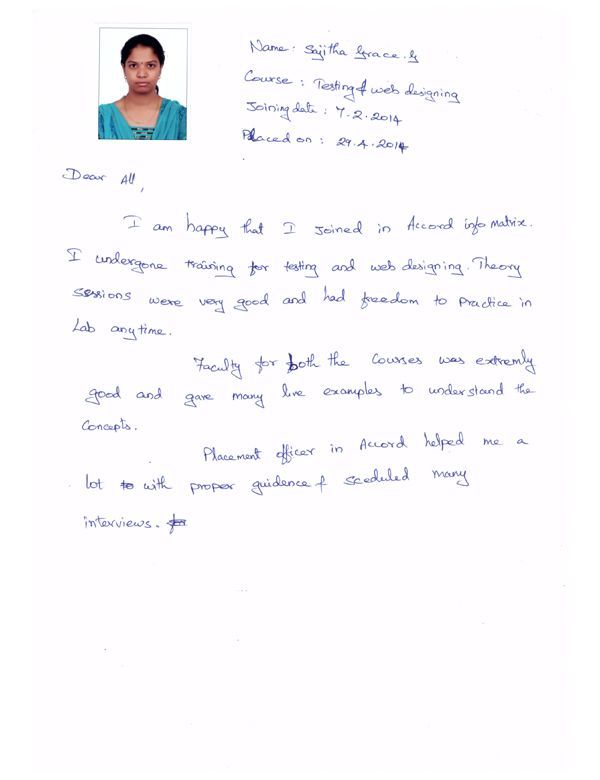 Name: Sajitha Grace.G
Course : Testing & web designing
Joining date : 7.2.2014
Placed on : 29.4.2014
Dear All,
I am happy that I joined in Accord info matrix.
I undergone training for testing and web designing. Theory
sessions were very good and had freedom to practice in
Lab anytime.
Faculty for both the courses was extremly
good and gave many live examples to understand the
concepts.
Placement officer in Accord helped me a
lot to with proper guidence & sceduled many
interviews. for